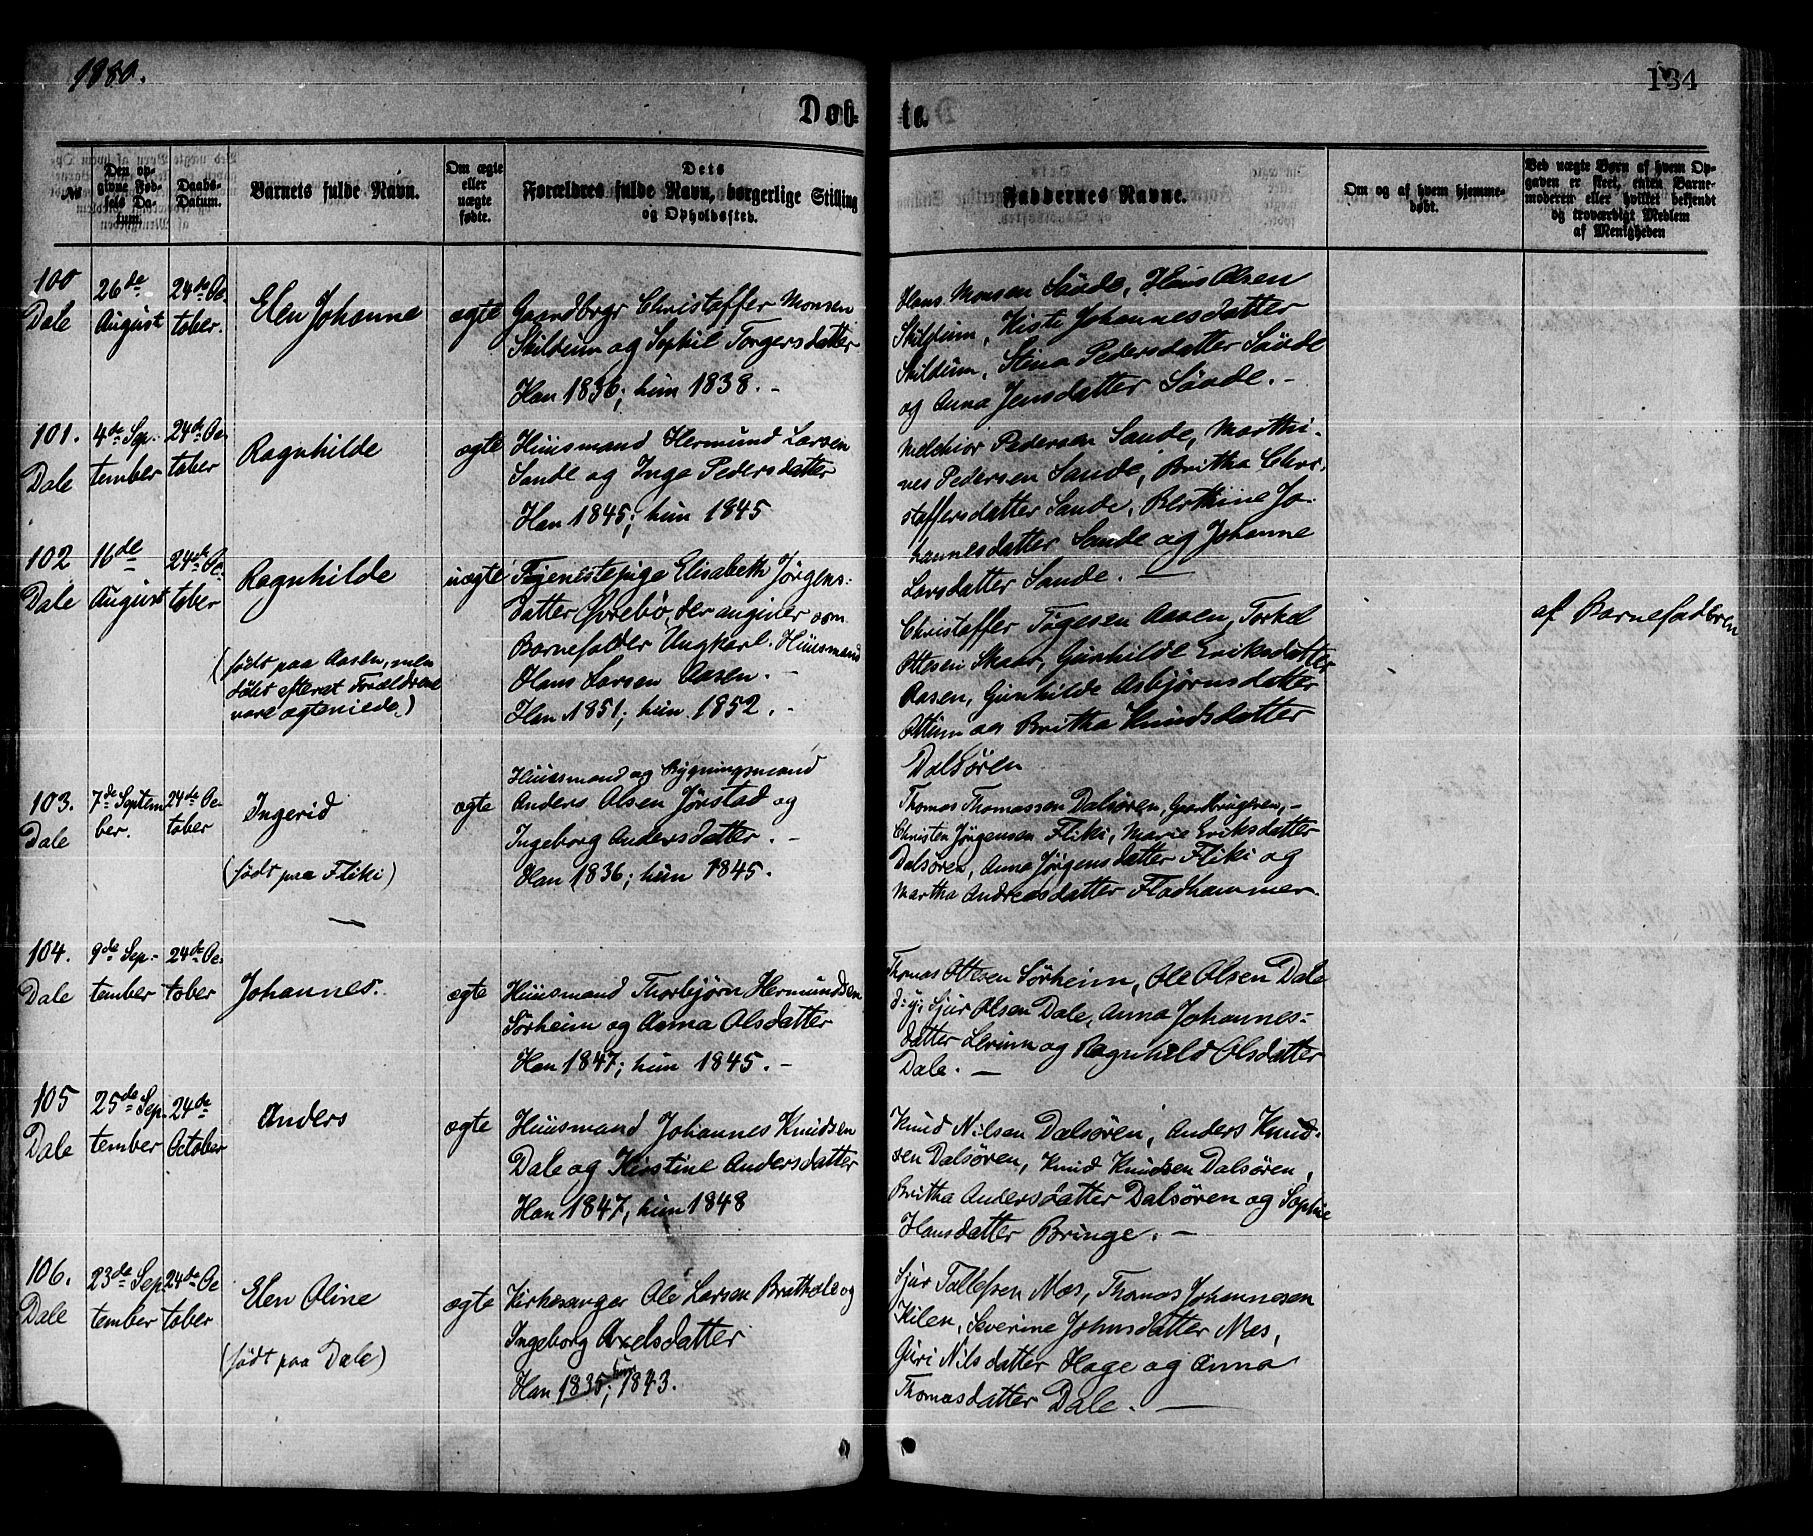 1880.
134
Døb-
te.
No
Den op-
givne Fød-
sels Da-
tum.
Daabs-
Datum.
Barnets fulde Navn.
Om ægte
eller
uægte
født.
Dets
Forældres fulde Navn, borgerlige Stilling
og Opholdssted.
Faddernes Navne.
Om og af hvem hjemme-
døbt.
Ved uægte Børn af hvem Op-
gaven er skeet, enten Barne-
moderen eller hvilket bekjendt
og troværdigt Medlem
af Menigheden
100
Dale
26de
August
24de Oc-
tober.
Elen Johanne
ægte
Gaardbrgr Christoffer Monsen
Skildeim og Sophie Torgersdatter
Han 1836; hun 1838. -
Hans Monsen Sande, Hans Olsen
Skildeim, Kiste Johannesdatter
Skildeim, Stina Pedersdatter Sande
og Anna Jensdatter Sande. -
101.
Dale
4de Sep-
tember
24de Oc-
tober
Ragnhilde
ægte
Huusmand Hermund Larsen
Sande og Inga Pedersdatter
Han 1845; hun 1845
Melchior Pedersen Sande, Marthi-
nes Pedersen Sande, Britha Chri-
stoffersdatter Sande, Berthine Jo-
hannesdatter Sande og Johanne
Larsdatter Sande. -
102
Dale
16de
August
24de Oc-
tober
Ragnhilde
(født paa Aasen, men
døbt efterat Forældrene
vare ægteviede)
uægte
Tjenestepige Elisabeth Jørgens-
datter Øvrebø, der angiver som
Barnefader Ungkarl. Huusmand
Hans Larsen Aasen. -
Han 1851; hun 1852. -
Christoffer Tøgesen Aasen, Torkel
Ottesen Skaar, Gunhilde Eriksdatter
Aasen, Gunhilde Asbjørnsdatter
Ottum og Britha Knudsdatter
Dalsøren
af Barnefaderen
103.
Dale
7de Septem
ber.
24de Oc-
tober
Ingerid
(født paa Fliki)
ægte
Huusmand og Bygningsmand
Anders Olsen Jørstad og
Ingeborg Andersdatter. -
Han 1836; hun 1845.
Thomas Thomassen Dalsøren, Gaardbrugeren, -
Christen Jørgensen Fliki, Marie Eriksdatter
Dalsøren, Anna Jørgensdatter Fliki og
Martha Andreasdatter Fladhammer
104.
Dale
9de Sep-
tember
24de Oc-
tober
Johannes.
ægte
Huusmand Thorbjørn Hermundsen
Sørheim og Anna Olsdatter
Han 1847; hun 1845. -
Thomas Ottesen Sørheim, Ole Olsen Dale
d:y: Sjur Olsen Dale, Anna Johannes-
datter Leirum og Ragnhild Olsdatter
Dale. -
105
Dale
25de Sep-
tember
24de
October
Anders
ægte
Huusmand Johannes Knudsen
Dale og Kirstine Andersdatter
Han 1847; hun 1848
Knud Nilsen Dalsøren, Anders Knud-
sen Dalsøren, Knud Knudsen Dalsøren,
Britha Andersdatter Dalsøren og Sophie
Hansdatter Bringe. -
106.
Dale
23de Sep-
tember
24de Oc
tober
Elen Oline
(født paa Dale)
ægte
Kirkesanger Ole Larsen Brathole og
Ingeborg Axelsdatter
Han 1835; hun 1843.
Sjur Tollefsen Næs, Thomas Johannesen
Kilen, Severine Johnsdatter Næs,
Guri Nilsdatter Hage og Anna
Thomasdatter Dale. -